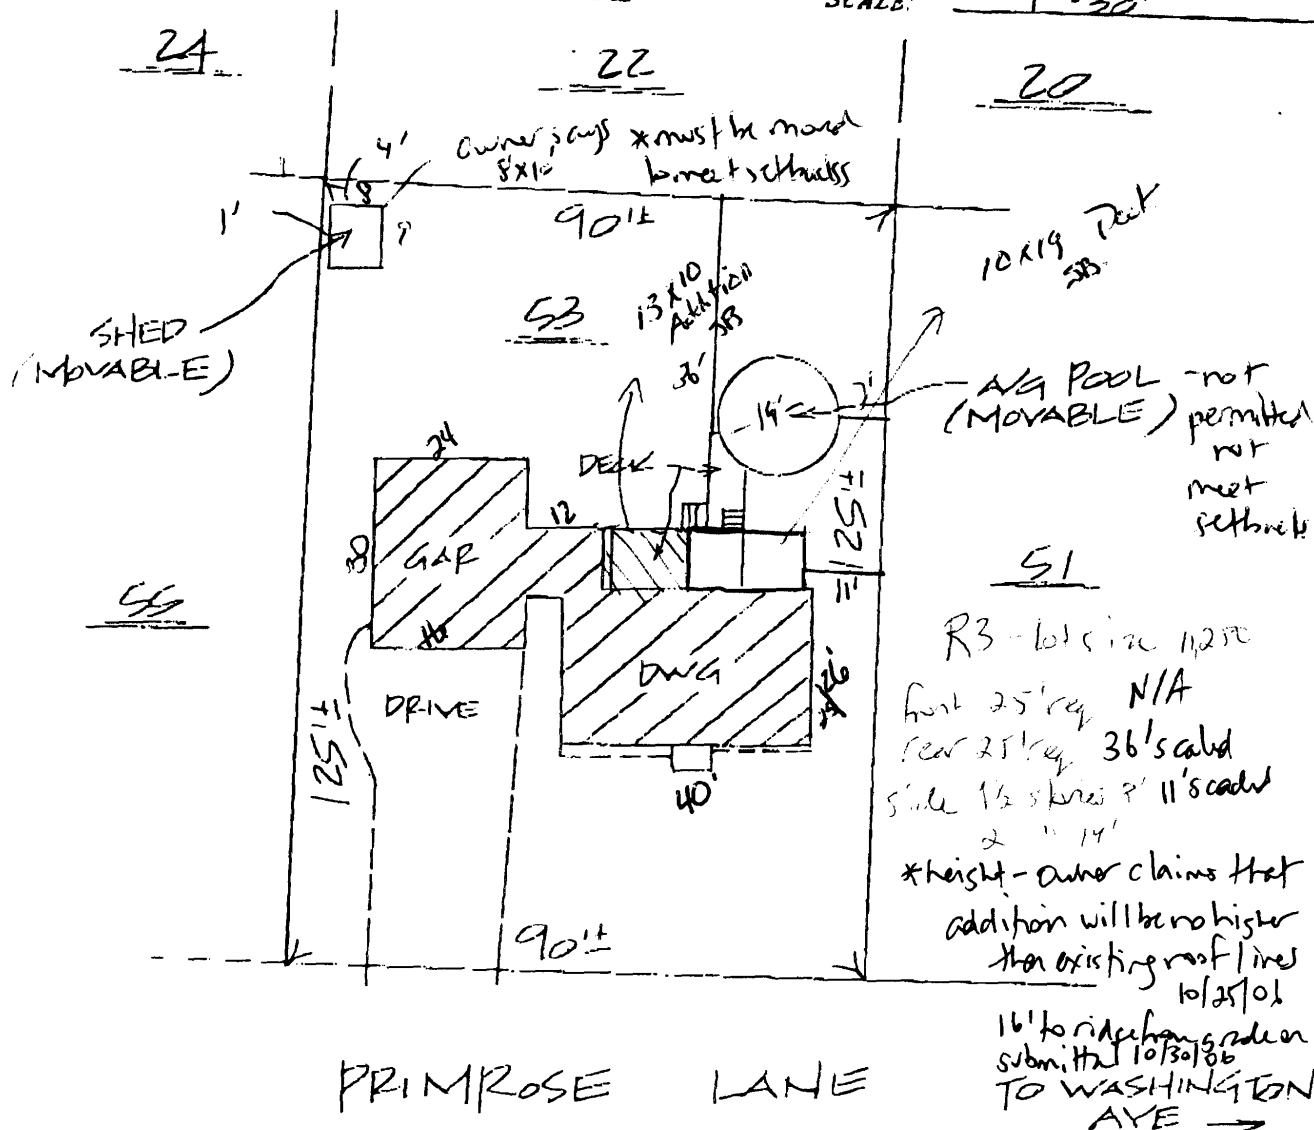 SCALE: 1" 30'
24
22
20
4'
owner says *must be moved
8x10 to meet setbacks
8
1'
9'
90'±
10x19 Deck
JB
SHED
(MOVABLE)
53
13x10
Addition
JB
36'
A/G POOL - not
(MOVABLE) permitted
not
meet
setbacks
2'
24
DECK
12
30
GAR
125'±
11'
55
51
DWG
26
DRIVE
R3 - lot size 11,250
front 25' req N/A
rear 25' req 36' scaled
side 1½ stories 11' scaled
2 " 14'
125'±
40'
*height - owner claims that
addition will be no higher
than existing roof lines
10/25/06
90'±
16' to ridge from grade on
submittal 10/30/06
PRIMROSE LANE
TO WASHINGTON
AVE